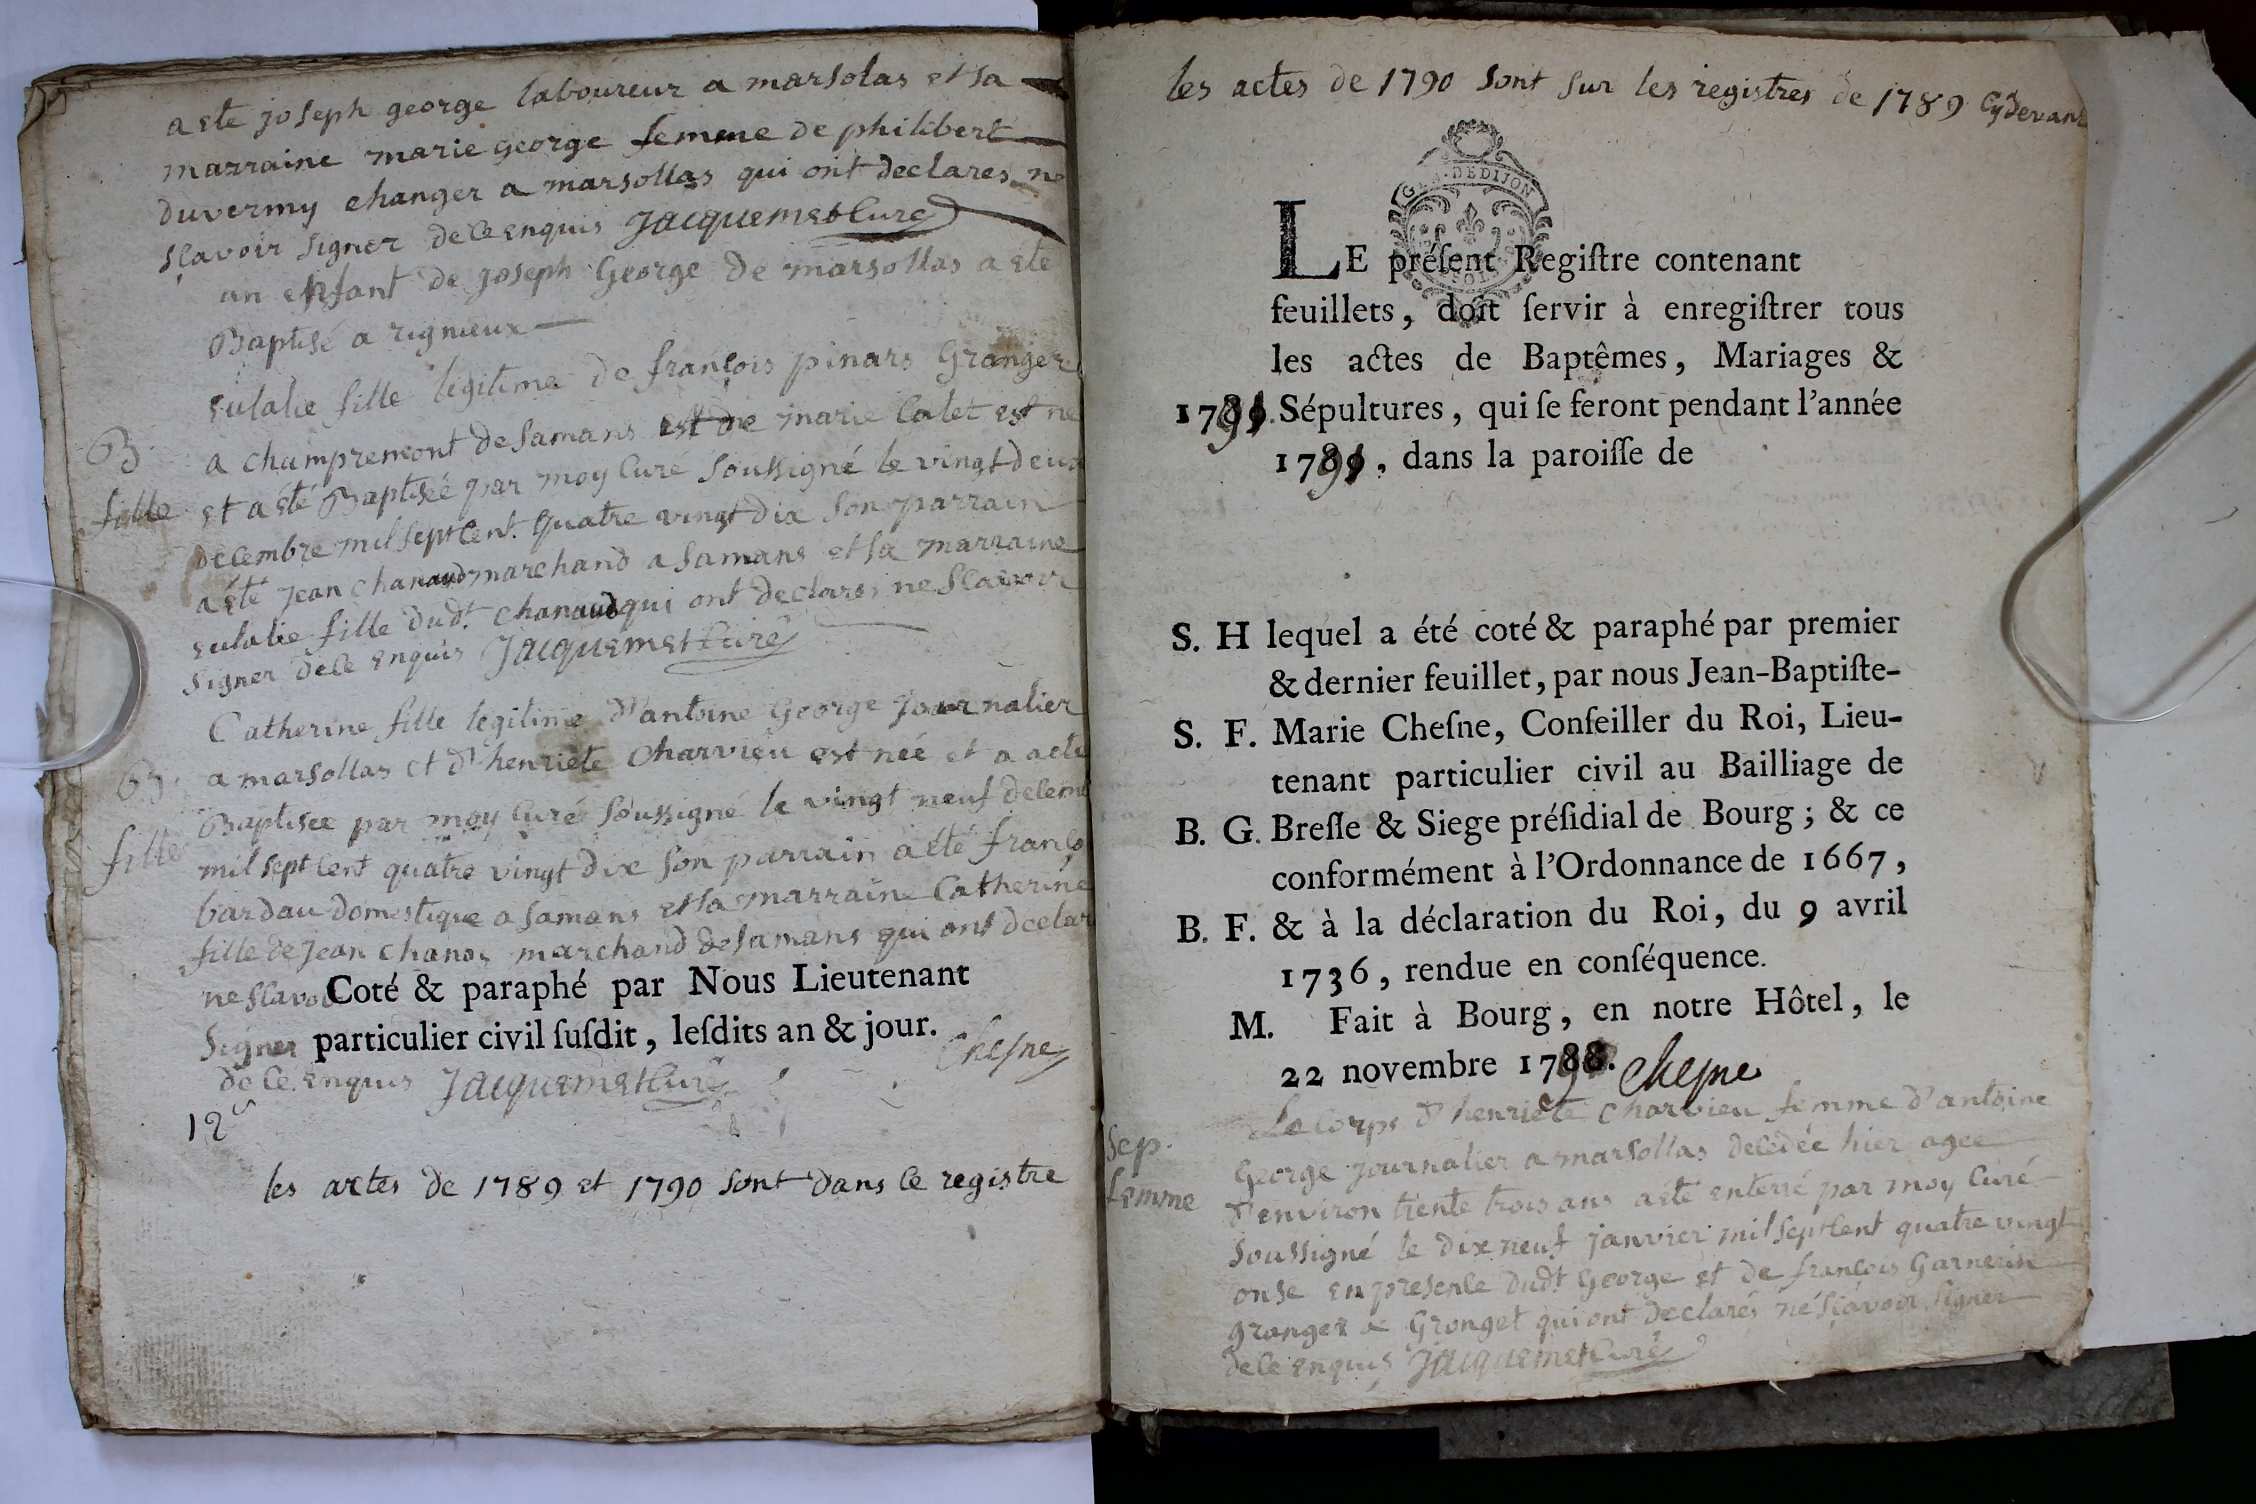 a ete joseph george laboureur a marsolas et sa
marraine marie george femme de philibert
duvermy changer a marsollas qui ont declares ne
sçavoir signer de ce enquis Jacquemet Curé
un enfant de joseph George de marsollas a ete
Baptisé a rignieux
B. fille
eulalie fille legitime de françois pinars Granger
a champremont de samans et de marie Calet est ne
et a eté Baptiseé par moy Curé soussigné le vingt deux
decembre mil sept cent quatre vingt dix son parrain
a ete Jean chanaud marchand a samans et sa marraine
eulalie fille dudt. chanaud qui ont declarés ne sçavoir
signer de ce enquis Jacquemet Curé
B. fille
Catherine fille legitime d'antoine George Journalier
a marsollas et d'henriete Charvieu est née et a aeté
Baptisee par moy Curé soussigné le vingt neuf decem
mil sept cent quatre vingt dix son parrain a été franço
bardau domestique a samans et sa marraine Catherine
fille de Jean chanos marchand de samans qui ont declar
ne sçavoi
Coté & paraphé par Nous Lieutenant
signer
particulier civil ſuſdit, leſdits an & jour.
de ce enquis Jacquemet Curé
Chesne
12e
les actes de 1789 et 1790 sont dans ce registre
les actes de 1790 sont sur les registres de 1789 Cy devant
GEN. DE DIJON
LE préſent Regiſtre contenant
feuillets, doit ſervir à enregiſtrer tous
les actes de Baptêmes, Mariages &
1791. Sépultures, qui ſe feront pendant l'année
1791, dans la paroiſſe de
S. H lequel a été coté & paraphé par premier
& dernier feuillet, par nous Jean-Baptiſte-
S. F. Marie Cheſne, Conſeiller du Roi, Lieu-
tenant particulier civil au Bailliage de
B. G. Breſſe & Siege préſidial de Bourg; & ce
conformément à l'Ordonnance de 1667,
B. F. & à la déclaration du Roi, du 9 avril
1736, rendue en conſéquence.
M. Fait à Bourg, en notre Hôtel, le
22 novembre 1790. Chesne
Sep. femme
Le Corps d'henriete Charvieu femme d'antoine
George journalier a marsollas decedée hier agee
d'environ trente trois ans a eté enterré par moy Curé
soussigné le dix neuf janvier mil sept cent quatre vingt
onse en presence dudt George et de françois Garnerin
granger a Gronget qui ont declarés ne sçavoir signer
de ce enquis Jacquemet Curé